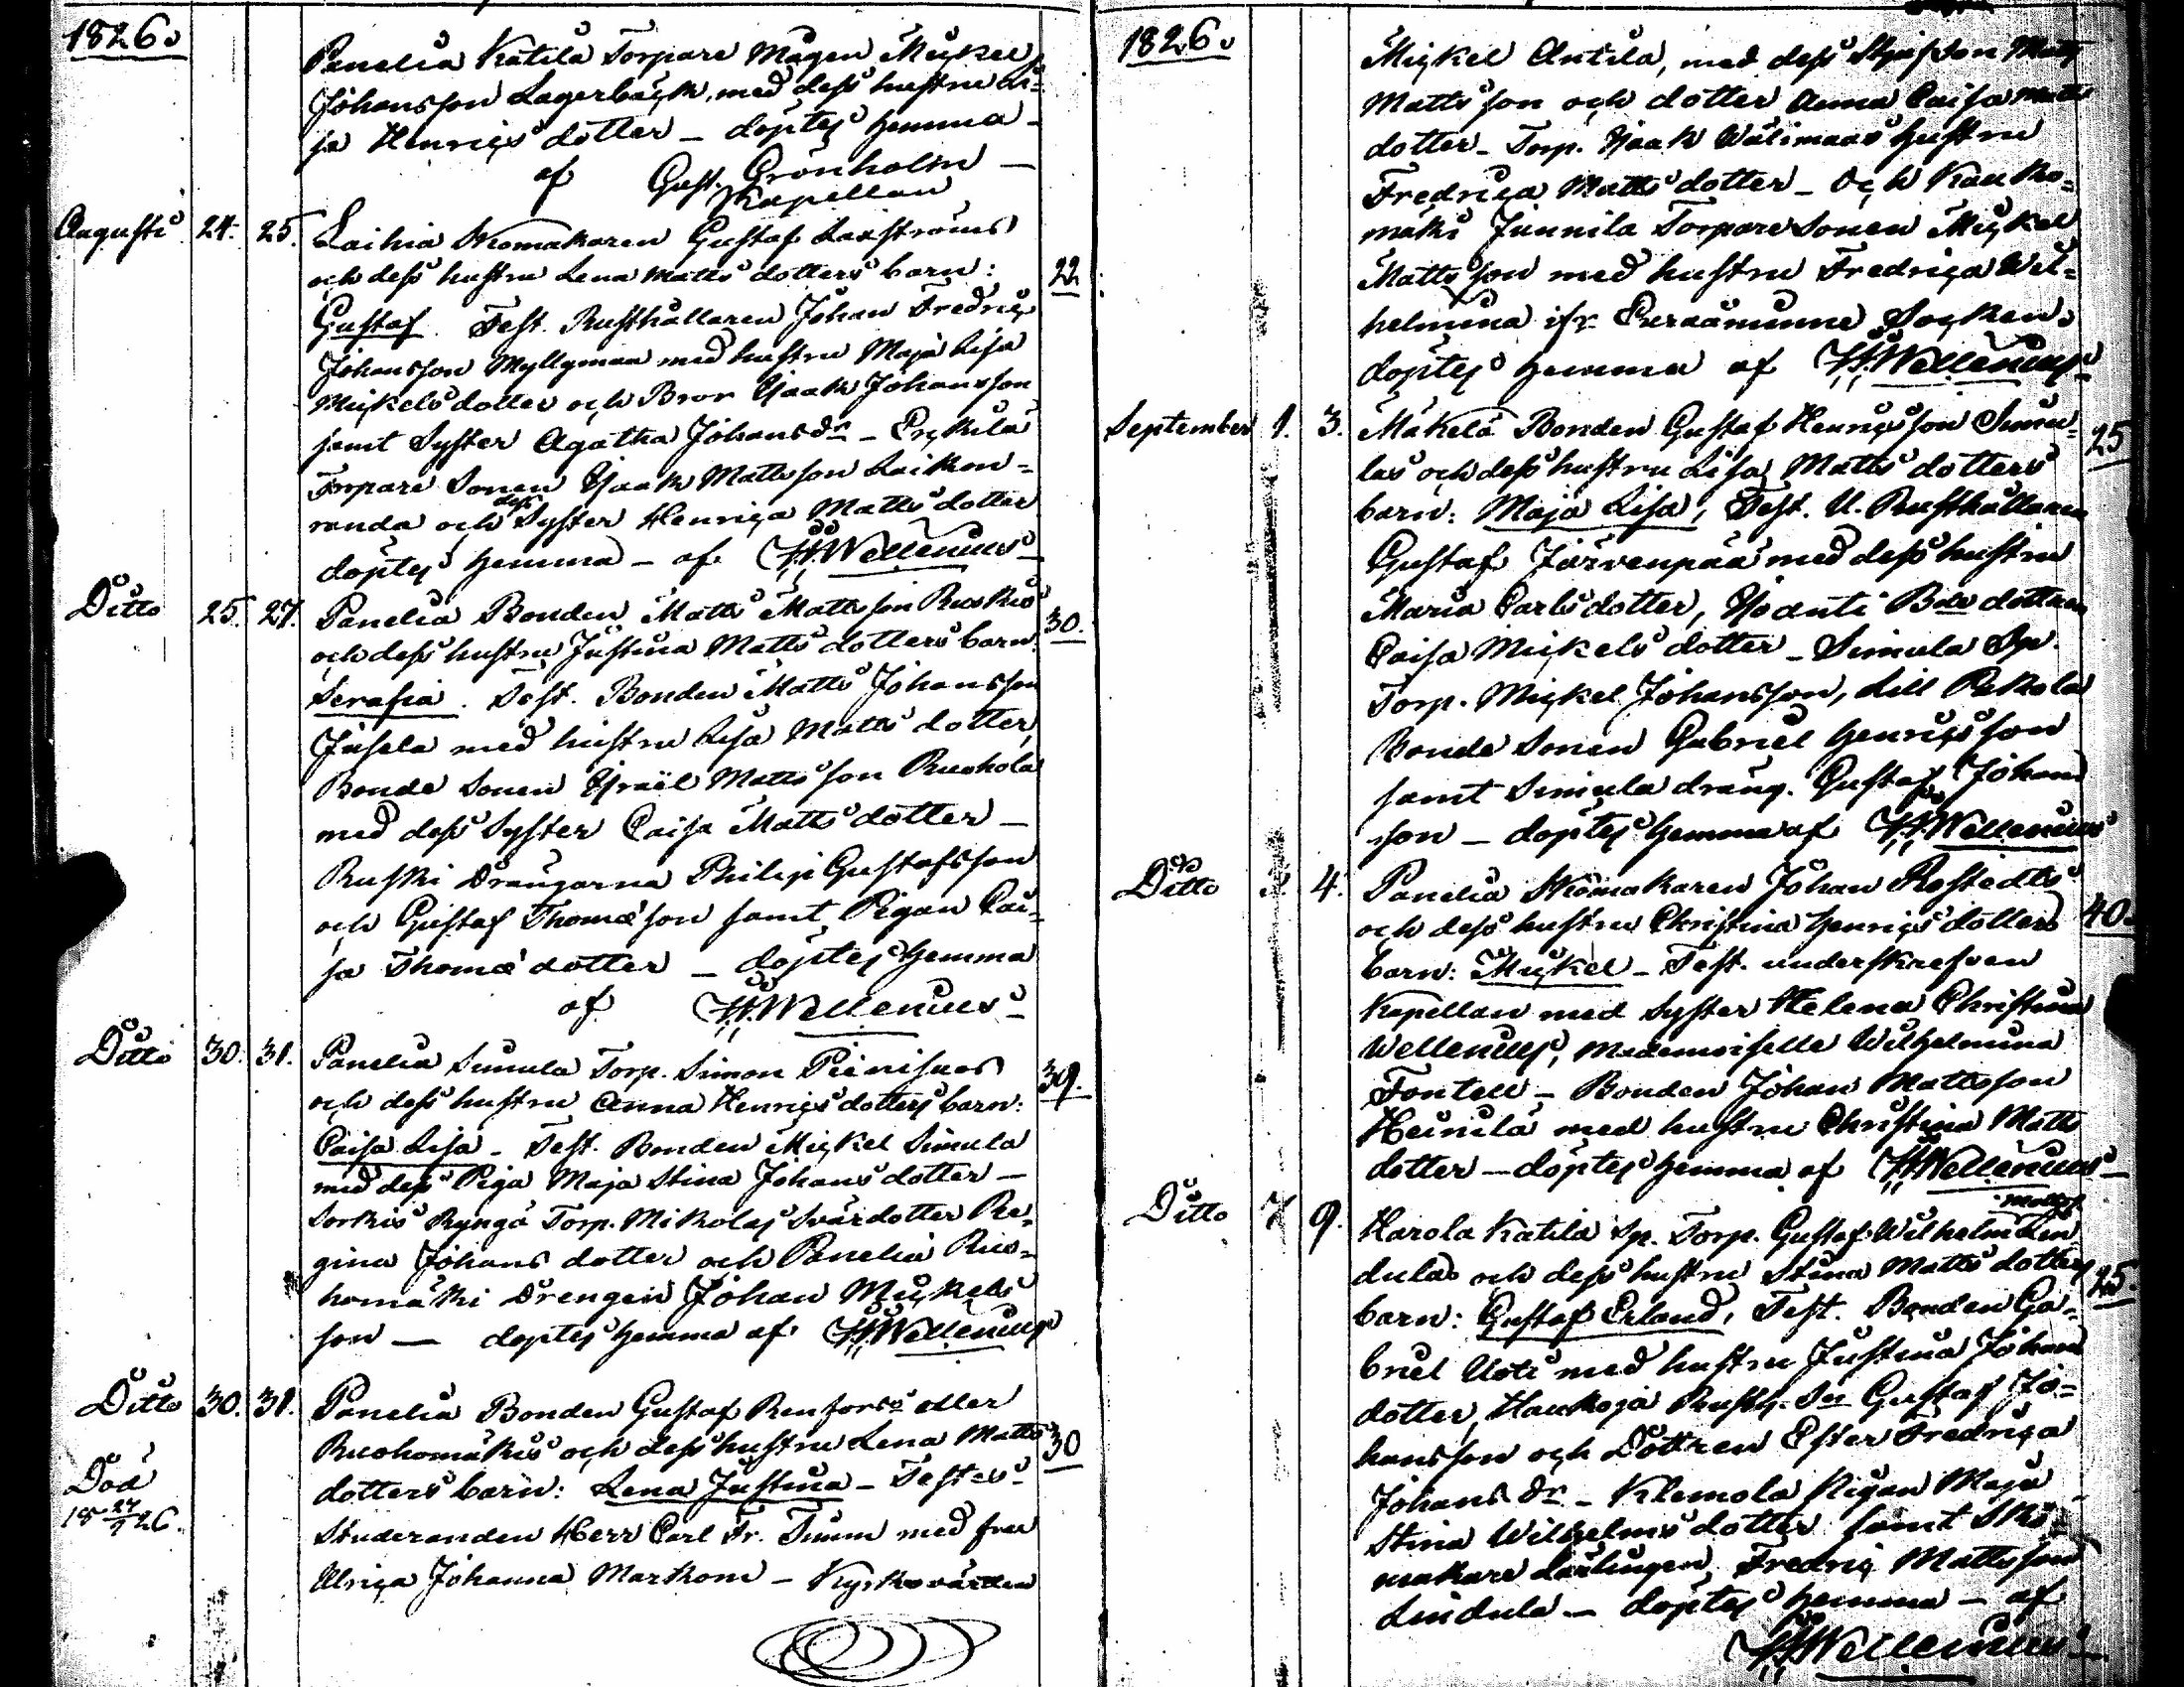 1826.
Panelia Katila Torpare Mågen Mickel
Johansson Lagerbäck, med dess hustru Li-
sa Henrics dotter - döptes hemma -
af Gust. Grönholm -
Kapellan
Augusti 24. 25. Laihia Skomakaren Gustaf Laxströms
och dess hustru Lena Matts dotters barn: 22
Gustaf. Test. Rusthållaren Johan Fredric
Johansson Myllymaa med hustru Maja Lisa
Mickels dotter och Bror Isaak Johansson
samt Syster Agatha Johans dr - Erckilä
Torpare Sonen Isaak Mattsson Laikon-
randa och dess Syster Henrica Matts dotter
döptes hemma - af H. Wellenius
Ditto 25. 27. Panelia Bonden Matts Mattsson Ruskis 30.
och dess hustru Justina Matts dotters barn:
Serafia. Test. Bonden Matts Johansson
Jusela med hustru Lisa Matts dotter,
Bonde Sonen Israël Matts son Ruohola
med dess Syster Caisa Matts dotter -
Ruski Drängarna Philip Gustafsson
och Gustaf Thomæ son samt Pigan Cai-
sa Thomæ dotter - döptes hemma
af H. Wellenius
Ditto 30. 31. Panelia Simula Torp. Simon 39.
och dess hustru Anna Henrics dotters barn:
Caisa Lisa - Test. Bonden Mickel Simula
med dess Piga Maja Stina Johans dotter -
Sorkis Torp. Mikolas Svärdotter Re-
gina Johans dotter och Panelia Ruo-
homäki Drengen Johan Mickels
son - döptes hemma af H. Wellenius
Ditto 30. 31. Panelia Bonden Gustaf Renfors eller
Ruohomäkis och dess hustru Lena Matts 30
dotters barn: Lena Justina - Testes
Död
18 27/9 26.
Studeranden Herr Carl Fr. med fru
Ulrica Johanna Markom - Kyrkovärden
1826.
Mickel Antila, med dess Styfson Matts
Matts son och dotter Anna Caisa Matts
dotter - Torp. Isaak Wälimaas hustru
Fredrica Matts dotter - Och Kauko-
mäki Junnila Torpare Sonen Mickel
Matts son med hustru Fredrica Wil-
helmina ifr. Euraåminne Socken.
döptes hemma af H. Wellenius
September 1. 3. Mäkelä Bonden Gustaf Henrics son Simu- 25
las och dess hustru Lisa Matts dotters
barn: Maja Lisa, Test. U. Rusthållaren
Gustaf Järvenpää med dess hustru
Maria Carls dotter, dottren
Caisa Mickels dotter - Simula Sp.
Torp. Mickel Johansson, Lill Pakola
Bonde Sonen Gabriel Henrics son
samt Simula dräng. Gustaf Johans
son - döptes hemma af H. Wellenius
Ditto 4. Panelia Skomakaren Johan Rostedts
och dess hustru Christina Henrics dotters 40.
barn: Mickel - Test. underskrefven
Kapellan med Syster Helena Christina
Wellenius, Mademoiselle Wilhelmina
Fontell - Bonden Johan Mattsson
Heinilä med hustru Christina Matts
dotter - döptes hemma af H. Wellenius
Ditto 7 9. Harola Katila Sp. Torp. Gustaf Wilhelm Lin
dulas och dess hustru Stina Matts dotters 25.
barn: Gustaf Erland, Test. Bonden Ga-
briel Uoti med hustru Justina Johans
dotter, Haukoja Rusth. Sn Gustaf Jo-
hansson och Dottren Ester Fredrica
Johans dr - Klemola Pigan Maja
Stina Wilhelms dotter samt Sko-
makare Lärlingen Fredric Mattsson
Lindula - döptes hemma - af
H. Wellenius